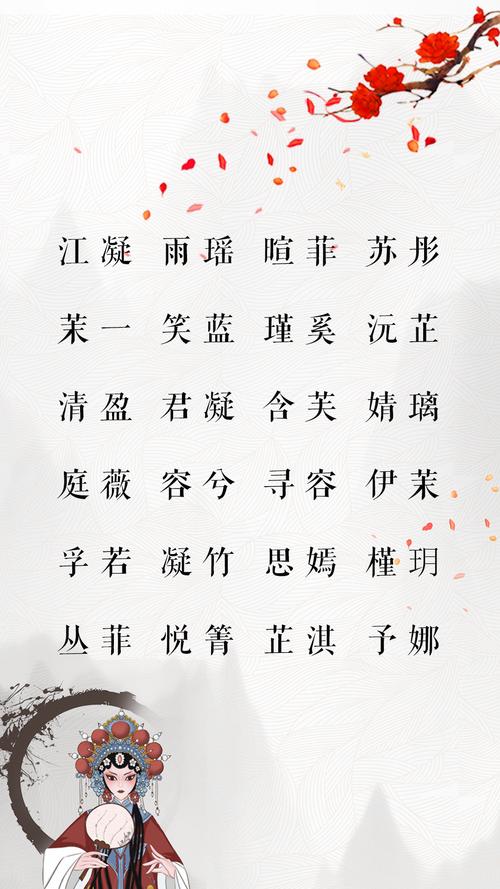 江凝 雨瑶 暄菲 苏彤
茉一 笑蓝 瑾奚 沅芷
清盈 君凝 含芙 婧璃
庭薇 容兮 寻容 伊茉
孚若 凝竹 思嫣 槿玥
丛菲 悦箐 芷淇 予娜